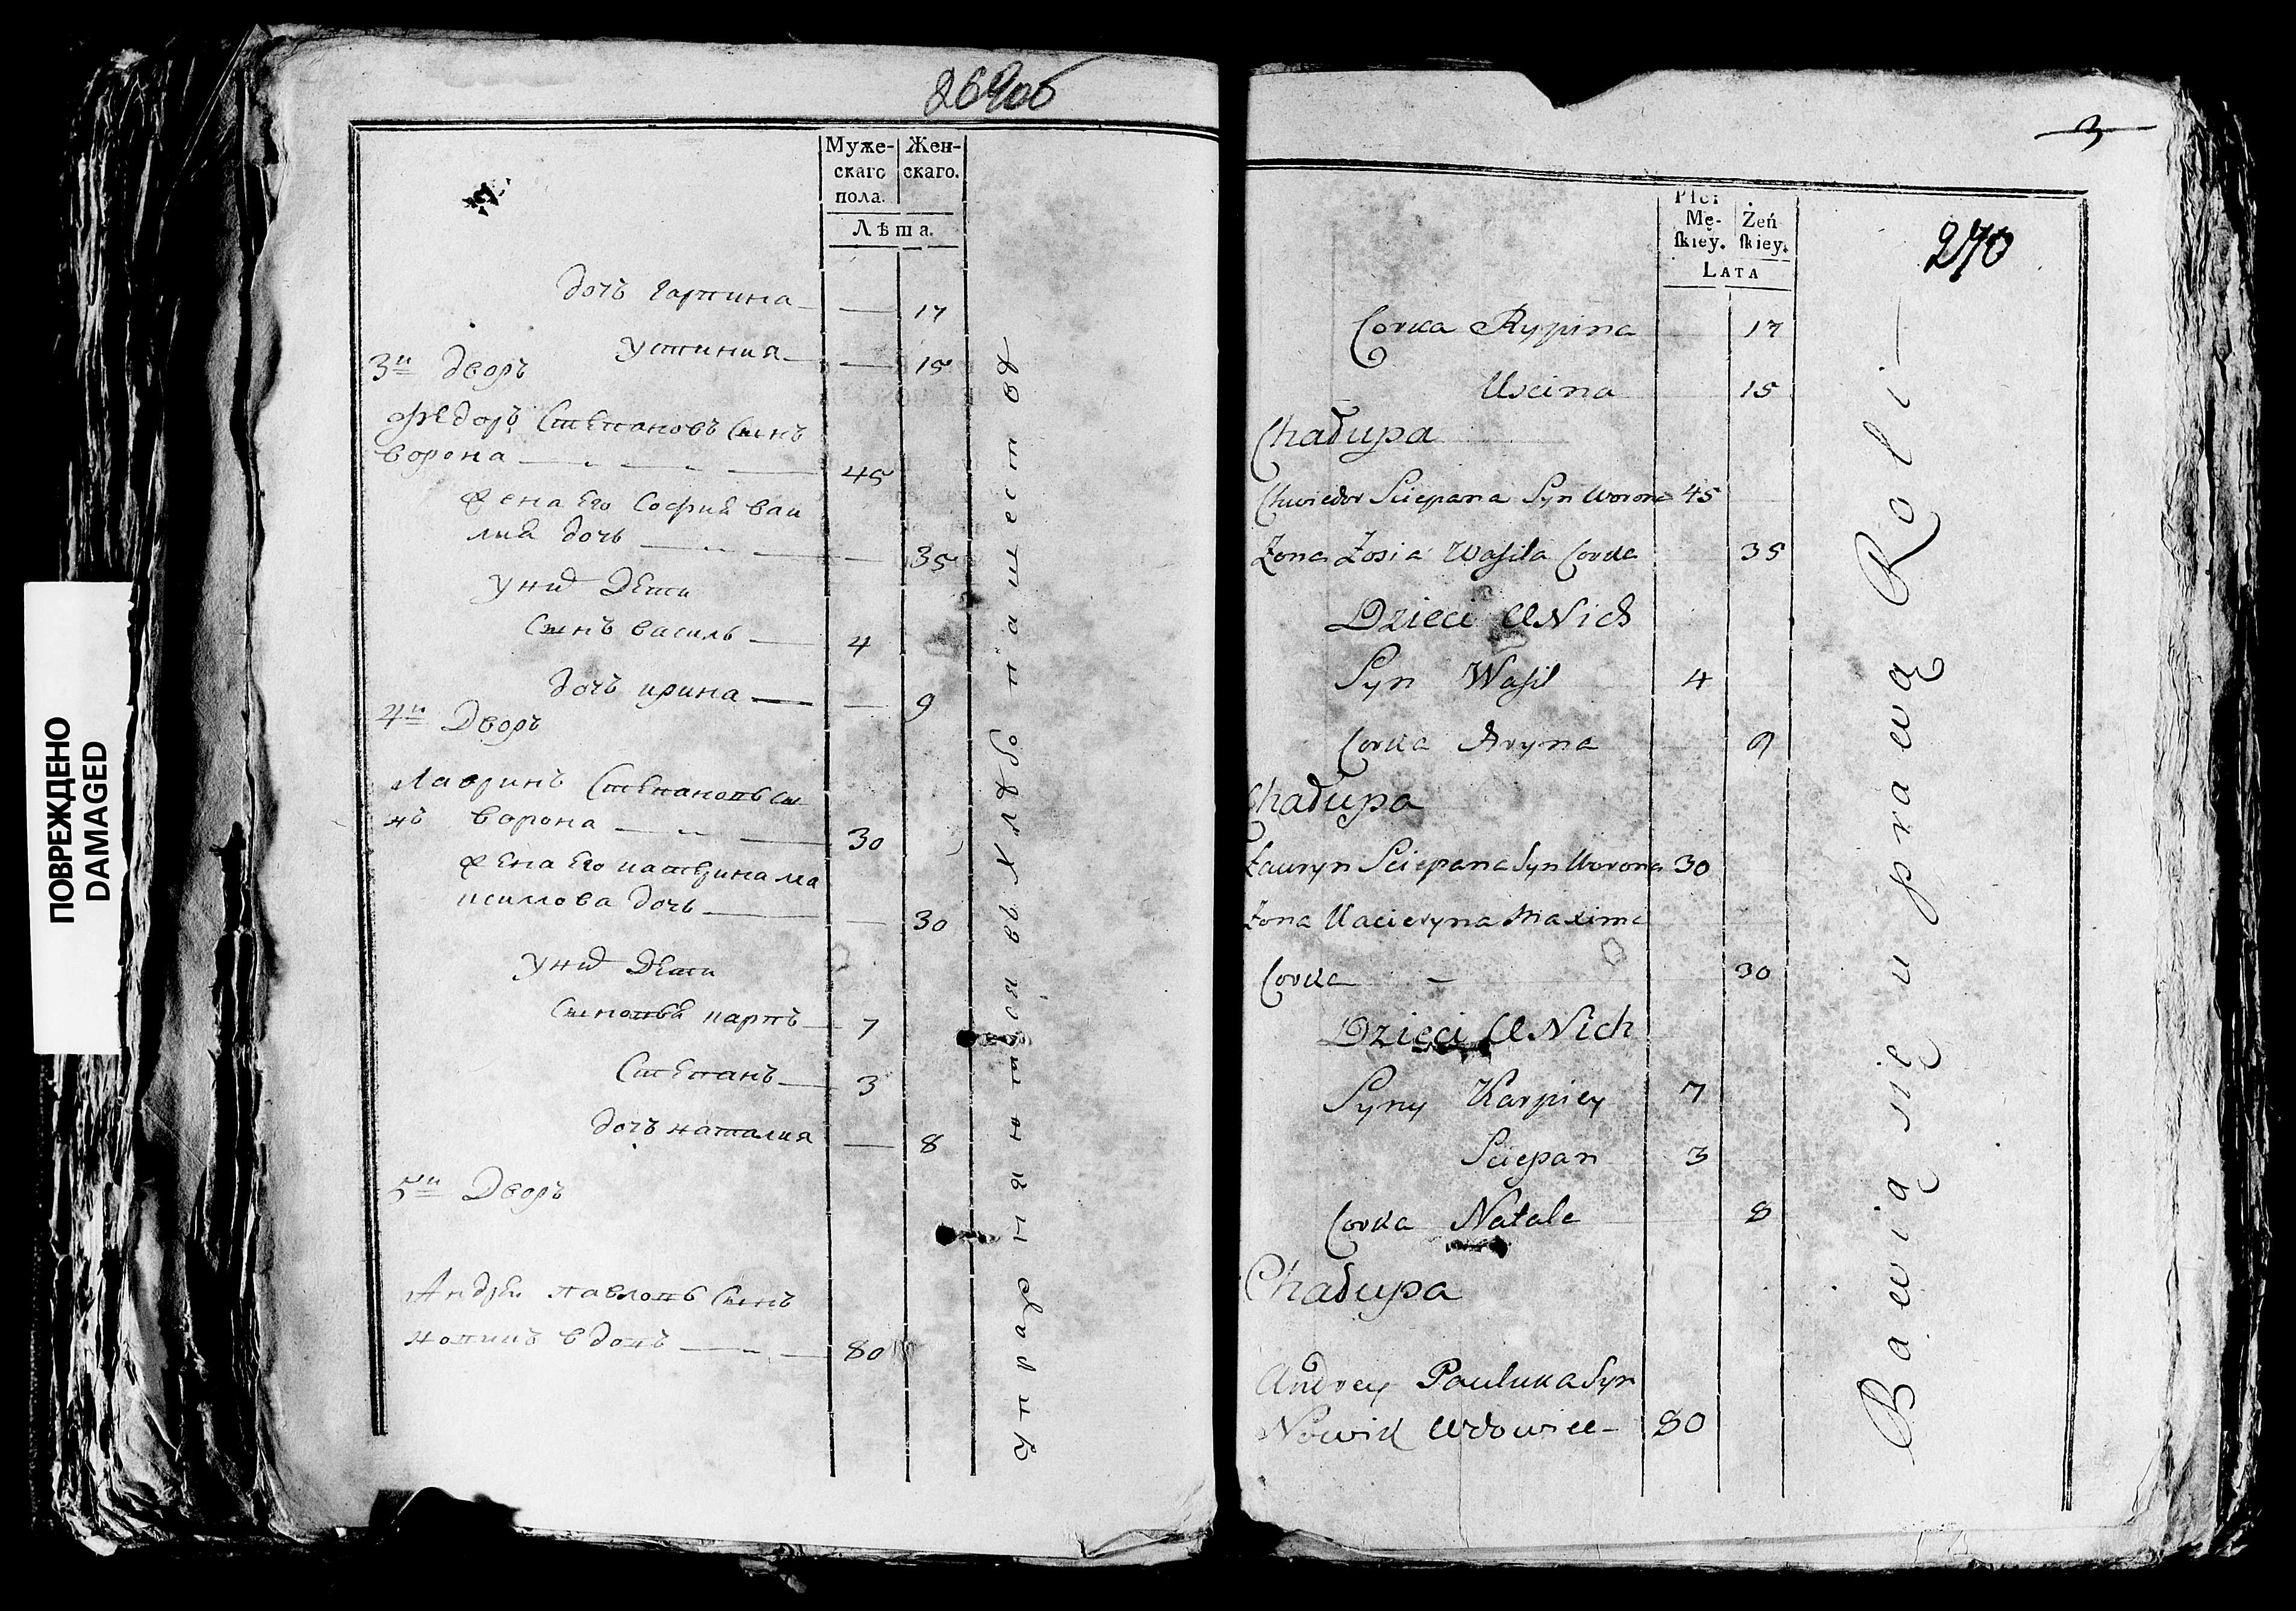 ПОВРЕЖДЕНО
DAMAGED
269об
Муже-
скаго
пола.
Жен-
скаго.
Лѣта.
дочъ 17
Устиния 15
3й дворъ
Федоръ Степановъ Синъ
ворона 45
жена Его София васи
лия дочъ 35
У них Дети
Синъ василь 4
дочъ ирина 9
4й Дворъ
Лавринъ Степановъ Си
нъ ворона 30
жена Его катерина ма
ксимова дочь 30
У них Дети
Синовья карпъ 7
Степанъ 3
дочъ наталия 8
5й Дворъ
Андрей павловъ Синъ
новикъ вдовъ 80
Упражняются въ хлѣбопашествѣ
3
270
Płci
Mę-
skiey.
Żeń
skiey.
LATA
Corka Rypina 17
Uscina 15
Chałupa
Chwiedor Sciepana Syn Worona 45
Żona Zosia Wasila Corka 35
Dzieci U Nich
Syn Wasil 4
Corka Aryna 9
Chałupa
Łauryn Sciepana Syn Worona 30
Żona Kacieryna Maxima
Corka - 30
Dzieci U Nich
Syny Karpiey 7
Sciepan 3
Corka Natala 8
Chałupa
Andrey Pauluka Syn
Nowik Wdowiec 80
Bawią się uprawą Roli